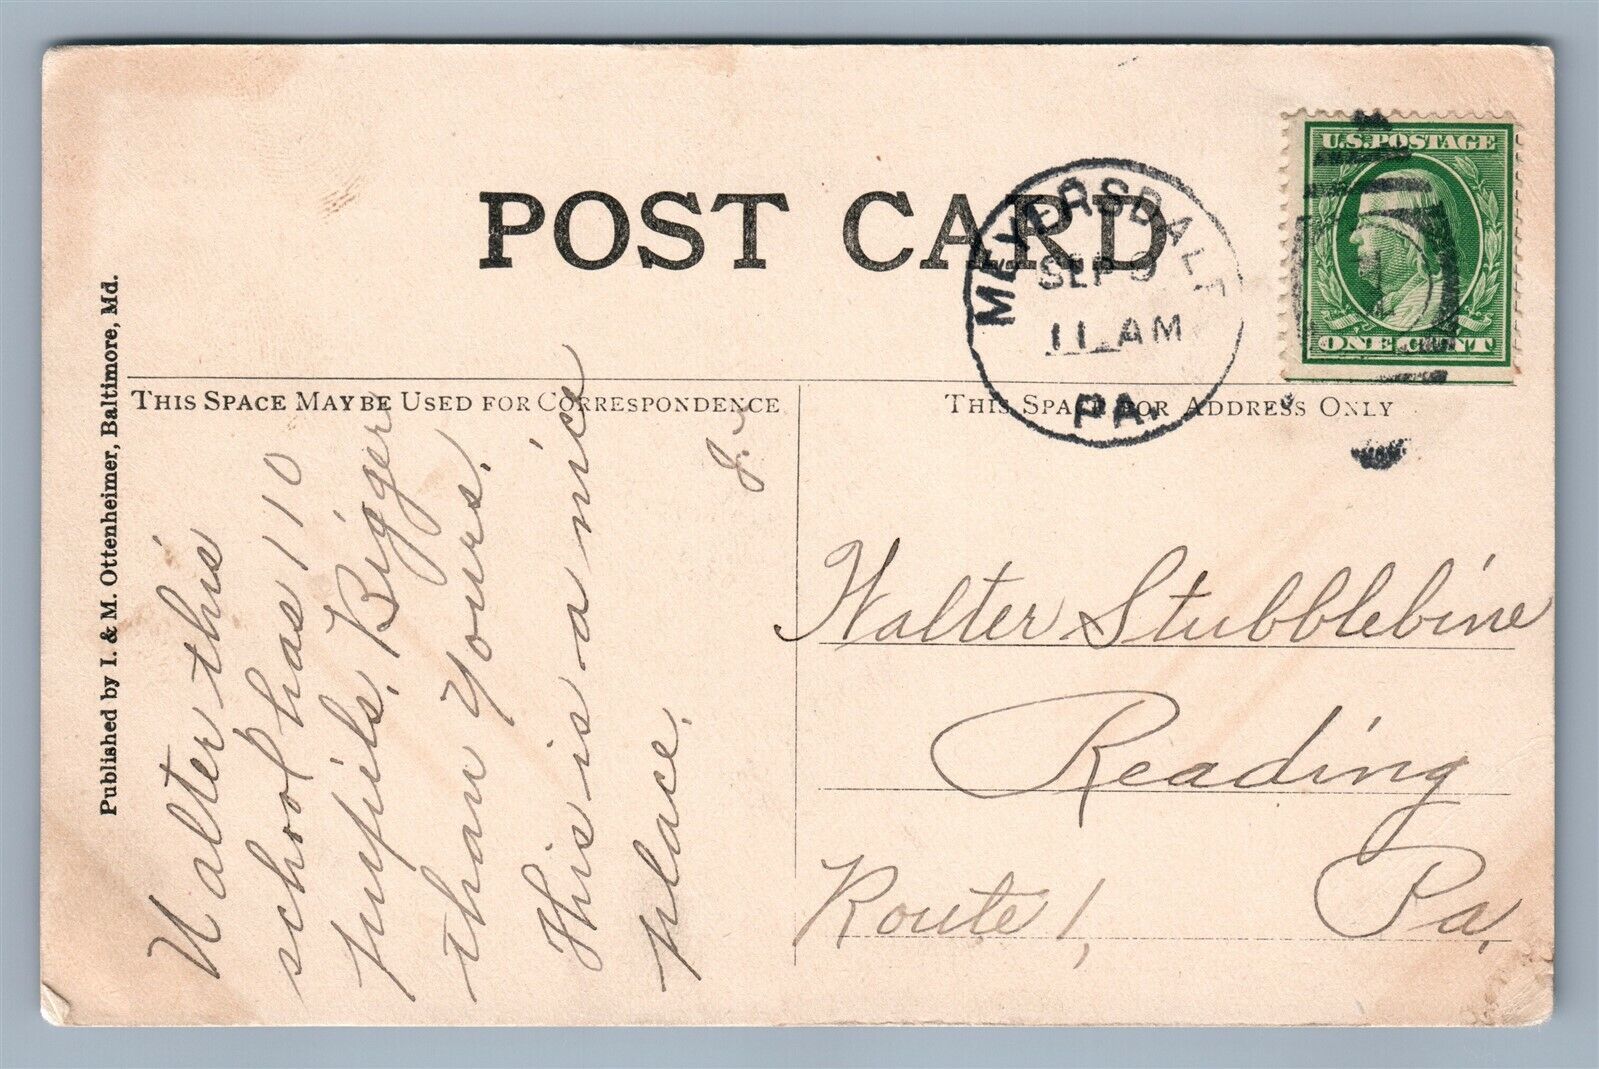 POST CARD
U.S. POSTAGE
ONE CENT
MEYERSDALE
SEP 9
11 AM
PA.
Published by I. & M. Ottenheimer, Baltimore, Md.
THIS SPACE MAY BE USED FOR CORRESPONDENCE
THIS SPACE FOR ADDRESS ONLY
Walter this
school has 110
pupils. Bigger
than yours.
This is a nice
place.
Walter Stubblebine
Reading
Route 1, Pa.